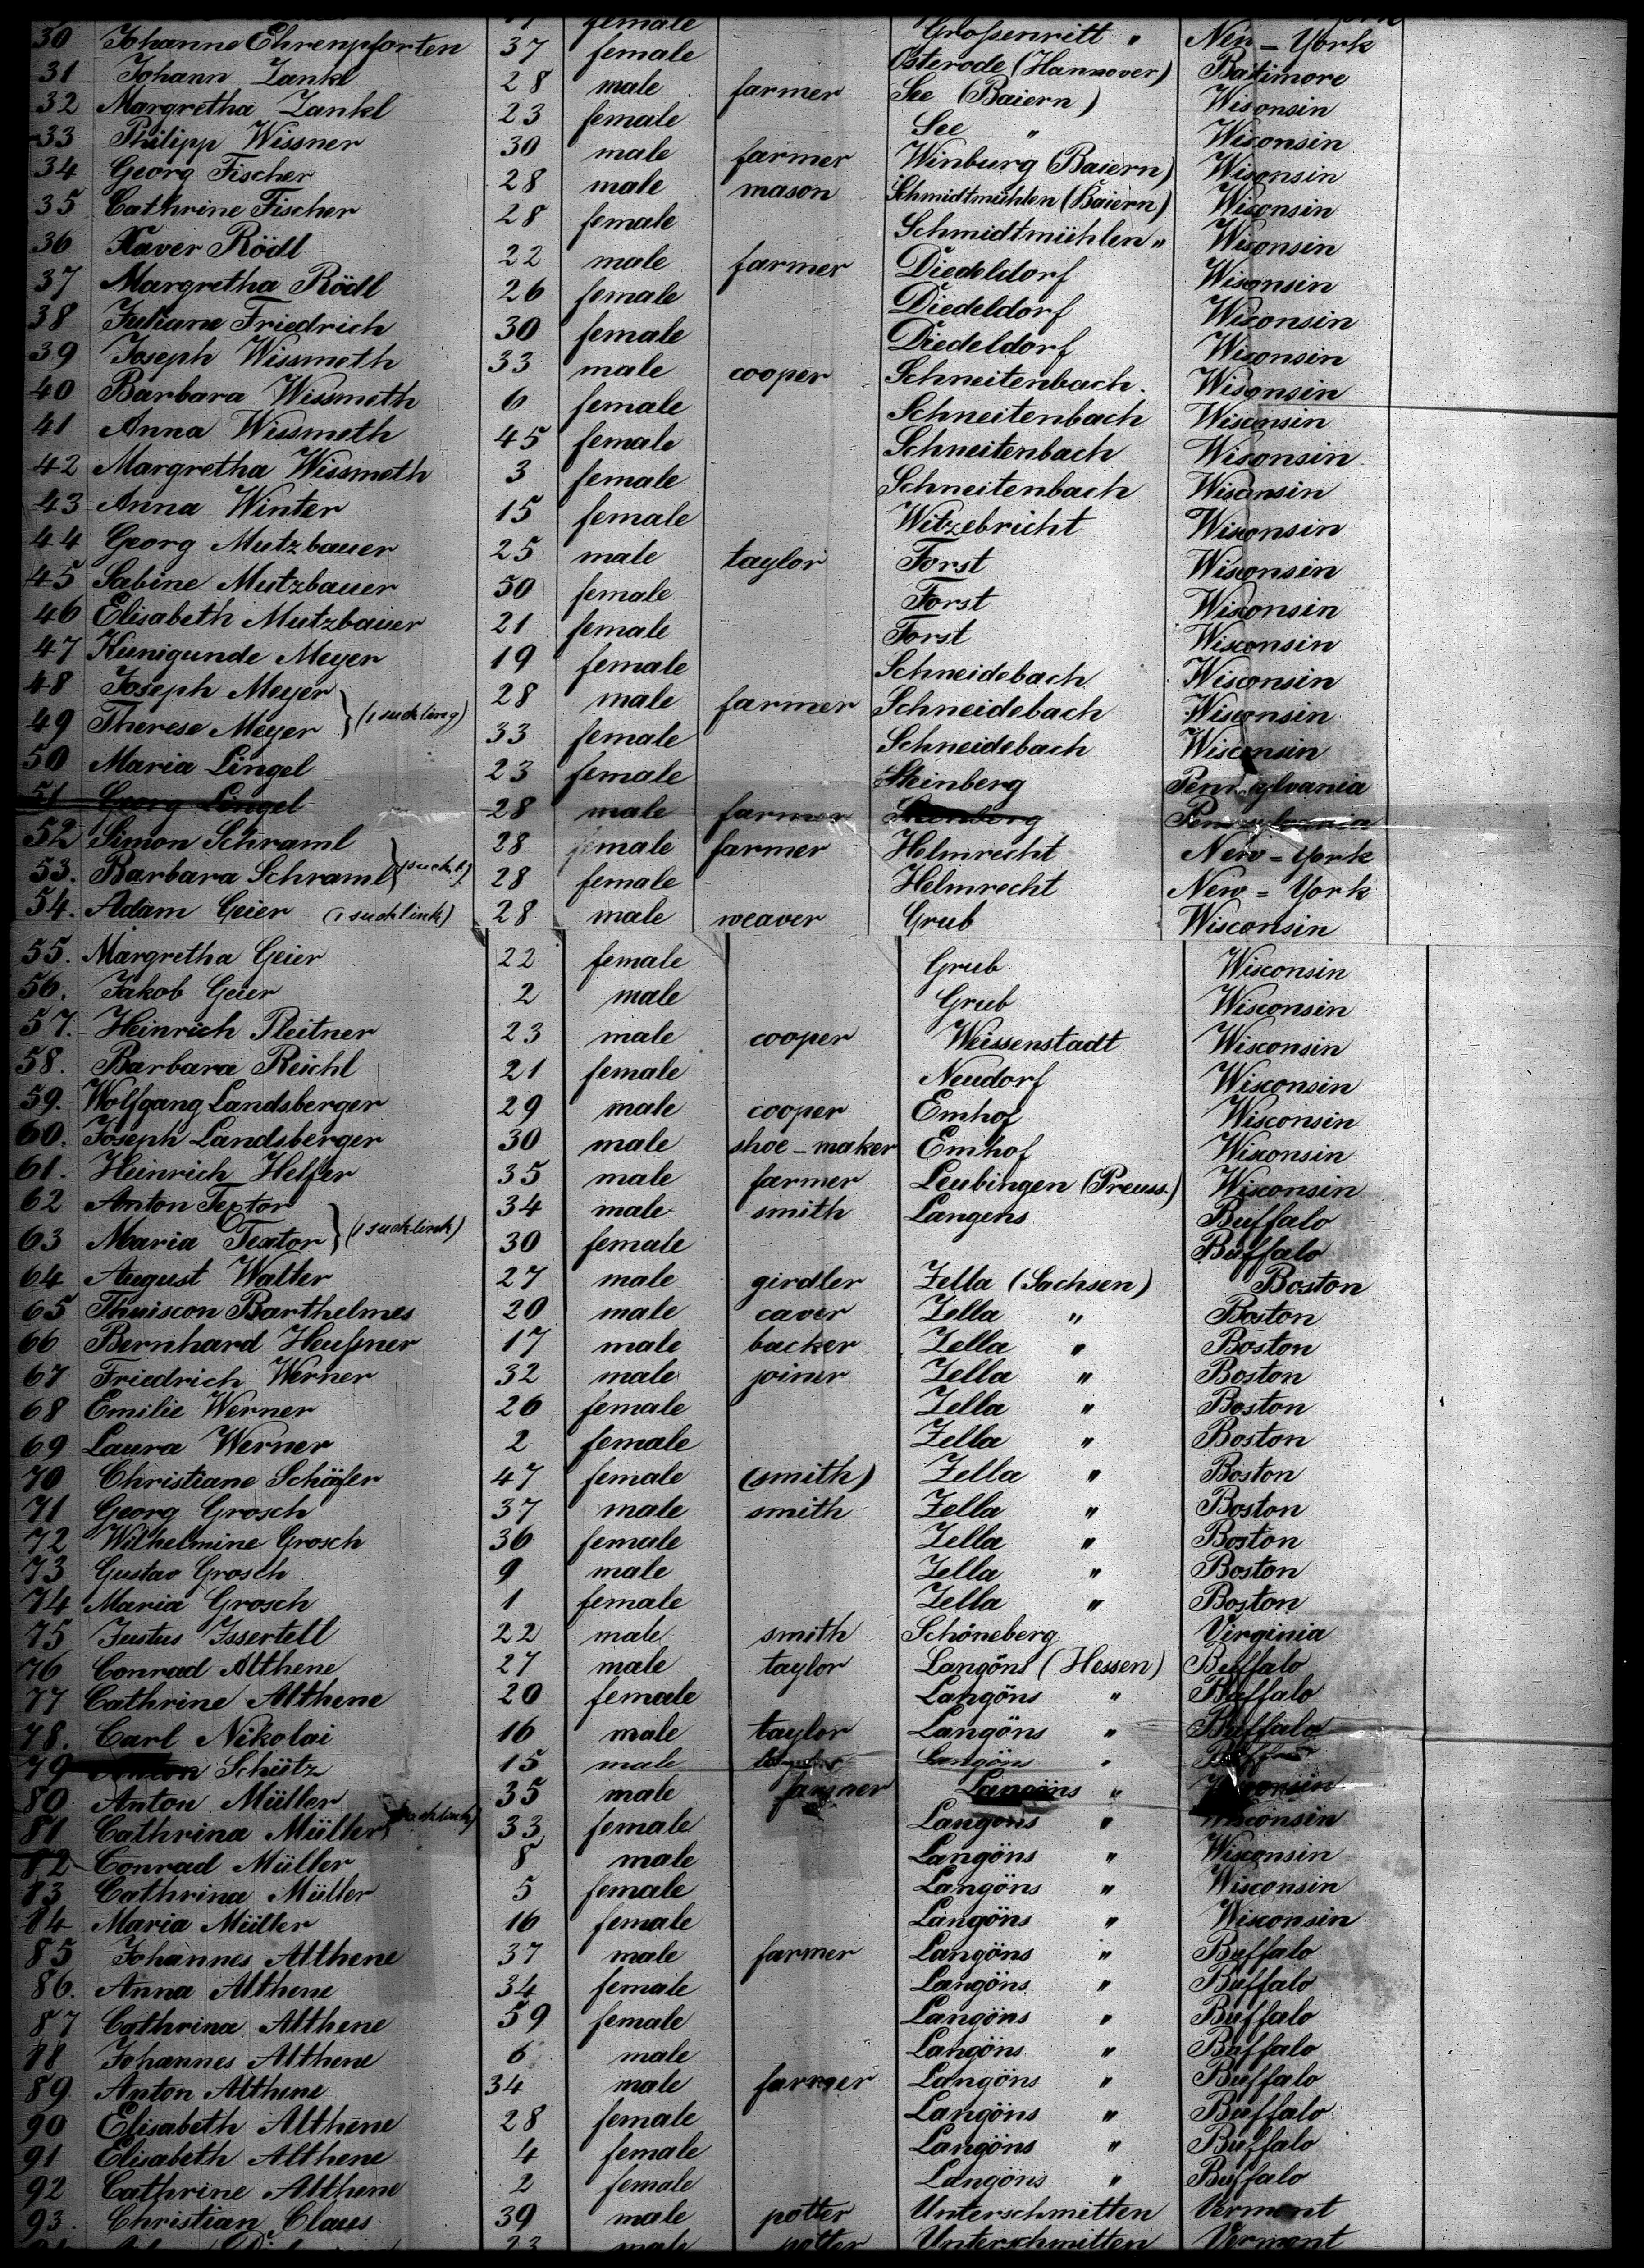 female Großenritt " New-York
30 Johanne Ehrenpforten 37 female Osterode (Hannover) Baltimore
31 Johann Zankl 28 male farmer See (Baiern) Wisconsin
32 Margretha Zankl 23 female See " Wisconsin
33 Philipp Wissner 30 male farmer Winburg (Baiern) Wisconsin
34 Georg Fischer 28 male mason Schmidtmühlen (Baiern) Wisconsin
35 Cathrine Fischer 28 female Schmidtmühlen " Wisconsin
36 Xaver Rödl 22 male farmer Diedeldorf Wisconsin
37 Margretha Rödl 26 female Diedeldorf Wisconsin
38 Juliane Friedrich 30 female Diedeldorf Wisconsin
39 Joseph Wissmeth 33 male cooper Schneitenbach. Wisconsin
40 Barbara Wissmeth 6 female Schneitenbach Wisconsin
41 Anna Wissmeth 45 female Schneitenbach Wisconsin
42 Margretha Wissmeth 3 female Schneitenbach Wisconsin
43 Anna Winter 15 female Witzebricht Wisconsin
44 Georg Mutzbauer 25 male taylor Forst Wisconsin
45 Sabine Mutzbauer 50 female Forst Wisconsin
46 Elisabeth Mutzbauer 21 female Forst Wisconsin
47 Kunigunde Meyer 19 female Schneidebach Wisconsin
48 Joseph Meyer (1 suckling) 28 male farmer Schneidebach Wisconsin
49 Therese Meyer 33 female Schneidebach Wisconsin
50 Maria Lingel 23 female Steinberg Pennsylvania
51 Georg Lingel 28 male farmer Steinberg Pennsylvania
52 Simon Schraml 28 male farmer Helmrecht New=York
53. Barbara Schraml 28 female Helmrecht New=York
54. Adam Geier (1 sucklink) 28 male weaver Grub Wisconsin
55. Margretha Geier 22 female Grub Wisconsin
56. Jakob Geier 2 male Grub Wisconsin
57. Heinrich Pleitner 23 male cooper Weissenstadt Wisconsin
58. Barbara Reichl 21 female Neudorf Wisconsin
59. Wolfgang Landsberger 29 male cooper Emhof Wisconsin
60. Joseph Landsberger 30 male shoe-maker Emhof Wisconsin
61. Heinrich Helfer 35 male farmer Leubingen (Preuss.) Wisconsin
62 Anton Textor 34 male smith Langens Buffalo
63 Maria Textor (1 sucklink) 30 female Buffalo
64 August Walter 27 male girdler Zella (Sachsen) Boston
65 Thuiscon Barthelmes 20 male caver Zella " Boston
66 Bernhard Heußner 17 male backer Zella " Boston
67 Friedrich Werner 32 male joiner Zella " Boston
68 Emilie Werner 26 female Zella " Boston
69 Laura Werner 2 female Zella " Boston
70 Christiane Schäfer 47 female (smith) Zella " Boston
71 Georg Grosch 37 male smith Zella " Boston
72 Wilhelmine Grosch 36 female Zella " Boston
73 Gustav Grosch 9 male Zella " Boston
74 Maria Grosch 1 female Zella " Boston
75 Justus Issertell 22 male smith Schöneberg Virginia
76 Conrad Althene 27 male taylor Langöns (Hessen) Buffalo
77 Cathrine Althene 20 female Langöns " Buffalo
78. Carl Nikolai 16 male taylor Langöns " Buffalo
79 Anton Schütz 15 male Langöns "
80. Anton Müller 35 male farmer Langöns " Wisconsin
81 Cathrina Müller 33 female Langöns " Wisconsin
82 Conrad Müller 8 male Langöns " Wisconsin
83 Cathrina Müller 5 female Langöns " Wisconsin
84 Maria Müller 16 female Langöns " Wisconsin
85 Johannes Althene 37 male farmer Langöns " Buffalo
86. Anna Althene 34 female Langöns " Buffalo
87 Cathrina Althene 59 female Langöns " Buffalo
88 Johannes Althene 6 male Langöns " Buffalo
89. Anton Althene 34 male farmer Langöns " Buffalo
90 Elisabeth Althene 28 female Langöns " Buffalo
91 Elisabeth Althene 4 female Langöns " Buffalo
92 Cathrine Althene 2 female Langöns " Buffalo
93. Christian Claus 39 male potter Unterschmitten Vermont
23 male potter Unterschmitten Vermont